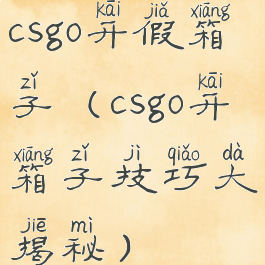 kāi jiǎ xiāng
csgo开假箱
zǐ kāi
子（csgo开
xiāng zǐ jì qiǎo dà
箱子技巧大
jiē mì
揭秘）